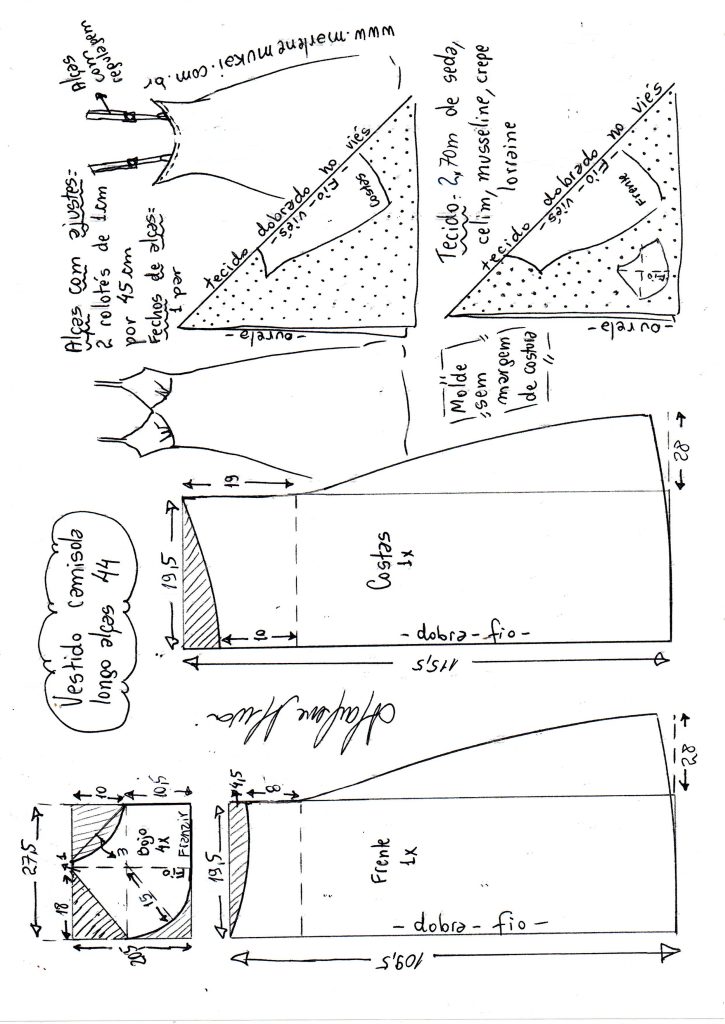 Vestido camisola
longo alças 44
Alças com ajustes:
2 rolotés de 1cm
por 45 cm
Fechos de alças:
1 par
Alças
com
regulagem
www.marlenemukai.com.br
tecido dobrado no viés
- Fio - viés -
Costas
- ourela -
Tecido: 2,70m de seda,
cetim, musseline, crepe
lorraine
tecido dobrado no viés
- Fio - viés -
Frente
Fio
- ourela -
Molde
sem
margem
de costura
27,5
18
1
10
10,5
20,5
3
15
Bojo
4x
Fio
Franzir
19,5
4,5
8
Frente
1x
- dobra - fio -
109,5
28
19,5
19
10
Costas
1x
- dobra - fio -
115,5
28